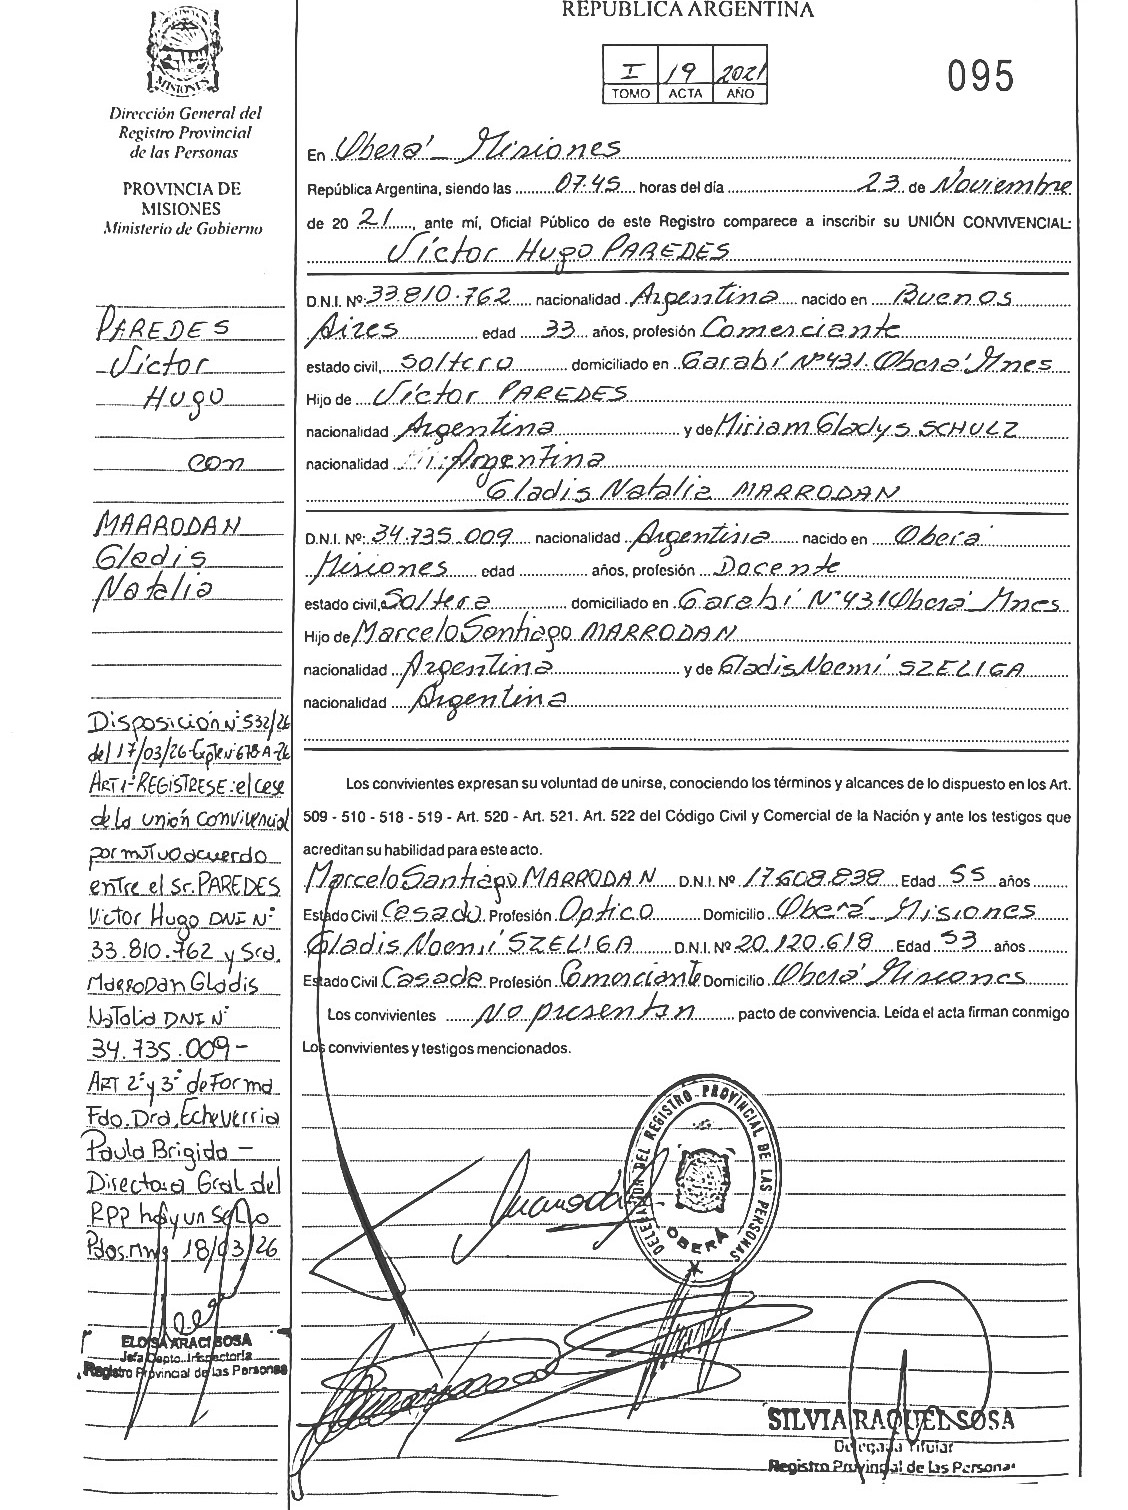 MISIONES
Dirección General del
Registro Provincial
de las Personas
PROVINCIA DE
MISIONES
Ministerio de Gobierno
PAREDES
Víctor
Hugo
con
MARRODAN
Gladis
Natalia
Disposición N° 532/26
del 17/03/26- Expte N° 678-A-26
ART 1°-REGISTRESE: el cese
de la unión convivencial
por mutuo acuerdo
entre el Sr. PAREDES
Victor Hugo DNI N°
33.810.762 y Sra.
MARRODAN Gladis
Natalia DNI N°
34.735.009-
ART 2° y 3° de Forma
Fdo. Dra. Echeverria
Paula Brigida -
Directora Gral del
RPP hay un Sello
Pdos. Mnes 18/03/26
ELOISA ARACI SOSA
Jefa Depto. Inspectoría
Registro Provincial de las Personas
REPUBLICA ARGENTINA
I 19 2021
TOMO ACTA AÑO
095
En Oberá Misiones
República Argentina, siendo las 07.45 horas del día 23 de Noviembre
de 20 21, ante mí, Oficial Público de este Registro comparece a inscribir su UNIÓN CONVIVENCIAL:
Víctor Hugo PAREDES
D.N.I. Nº 33.810.762 nacionalidad Argentina nacido en Buenos
Aires edad 33 años, profesión Comerciante
estado civil, soltero domiciliado en Garabí Nº431. Oberá Mnes
Hijo de Víctor PAREDES
nacionalidad Argentina y de Miriam Gladys SCHULZ
nacionalidad Argentina
Gladis Natalia MARRODAN
D.N.I. Nº: 34.735.009 nacionalidad Argentina nacido en Oberá
Misiones edad años, profesión Docente
estado civil, Soltera domiciliado en Garabí N°431 Oberá Mnes
Hijo de Marcelo Santiago MARRODAN
nacionalidad Argentina y de Gladis Noemí SZELIGA
nacionalidad Argentina
Los convivientes expresan su voluntad de unirse, conociendo los términos y alcances de lo dispuesto en los Art.
509 - 510 - 518 - 519 - Art. 520 - Art. 521. Art. 522 del Código Civil y Comercial de la Nación y ante los testigos que
acreditan su habilidad para este acto.
Marcelo Santiago MARRODAN D.N.I. Nº 17.608.838 Edad 55 años
Estado Civil Casado Profesión Optico Domicilio Oberá Misiones
Gladis Noemí SZELIGA D.N.I. Nº 20.120.618 Edad 53 años
Estado Civil Casada Profesión Comerciante Domicilio Oberá Misiones
Los convivientes No presentan pacto de convivencia. Leída el acta firman conmigo
Los convivientes y testigos mencionados.
DEL REGISTRO PROVINCIAL DE LAS PERSONAS
OBERÁ
SILVIA RAQUEL SOSA
Delegada Titular
Registro Provincial de las Personas